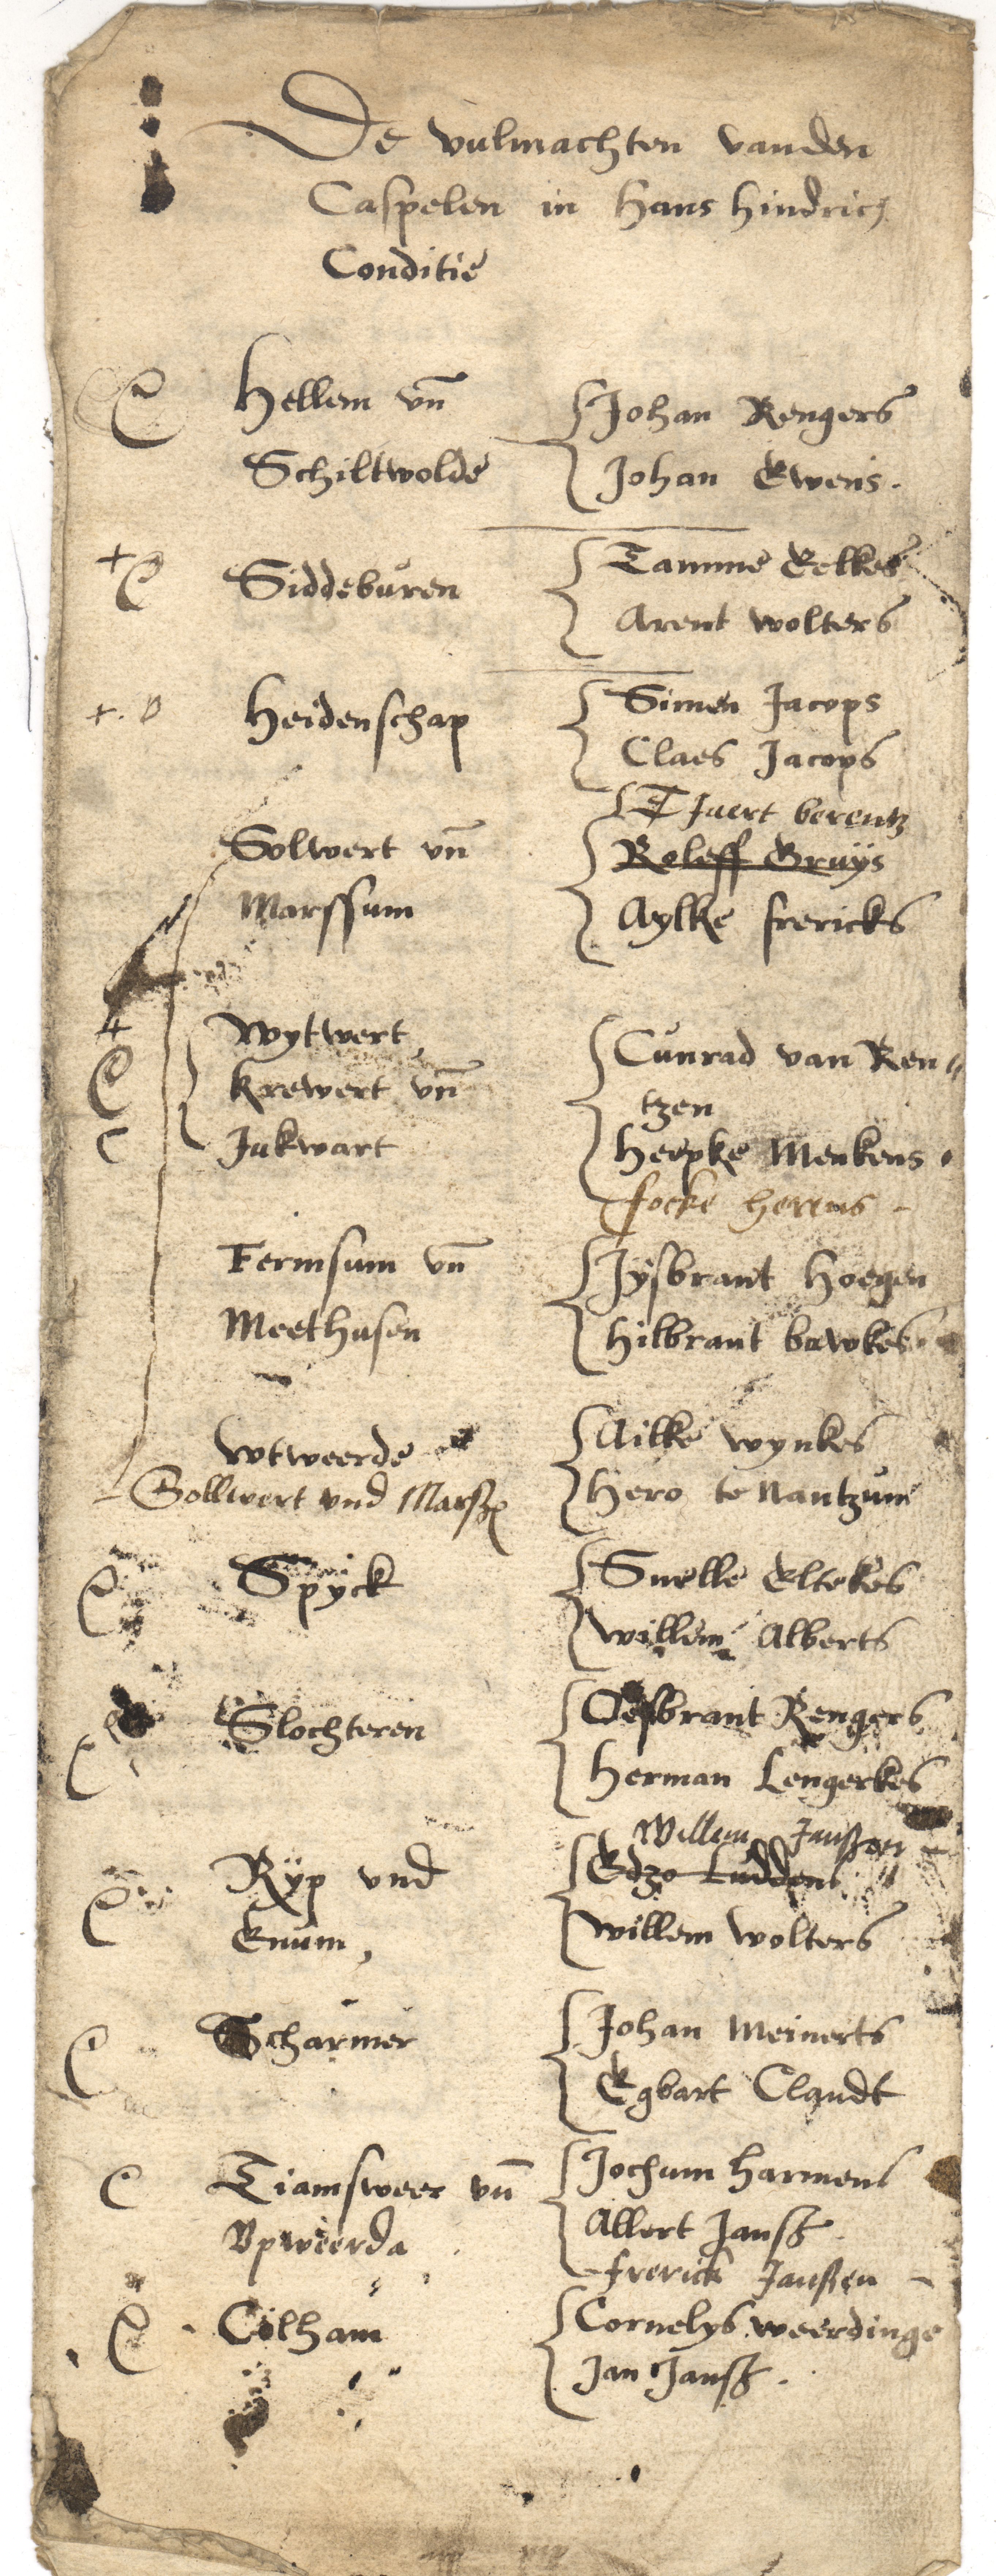 De vulmachten vanden
Caspelen in Hans Hindrics
Conditie
Hellem vn̄
Schiltwolde
Johan Rengers
Johan Ewens.
Siddebůren
Tamme Eelkes
Arent wolters
Heidenschap
Simen Jacops
Claes Jacops
Solwert vn̄
Marssum
Tjaert berentz
Roleff Bruÿs
Aylke frericks
Wytwert,
Krewert vn̄
Jukwart
Cůnrad van Ren"
tzen
Heepke Menkens.
focke herens -
Fermsum vn̄
Meethusen
Jÿsbrant Hoegen
Hilbrant bawkes
wtweerde
Sollwert vnd Marß
Ailke wynkes
Hero te Nantzum
Spyck
Snelle Eltekes
willem Alberts
Slochteren
Oesbrant Rengers
Herman Lengerkes
Rÿp vnd
Enům,
Willem Janßen
Edzo Luddens
willem wolters
Scharmer
Johan Meinerts
Egbart Clandt
Tiamsweer vn̄
Vpweerda
Jochum Harmens
Allert Janß.
frerick Janßen -
Cölham
Cornelys weerdinge
Jan Janß.